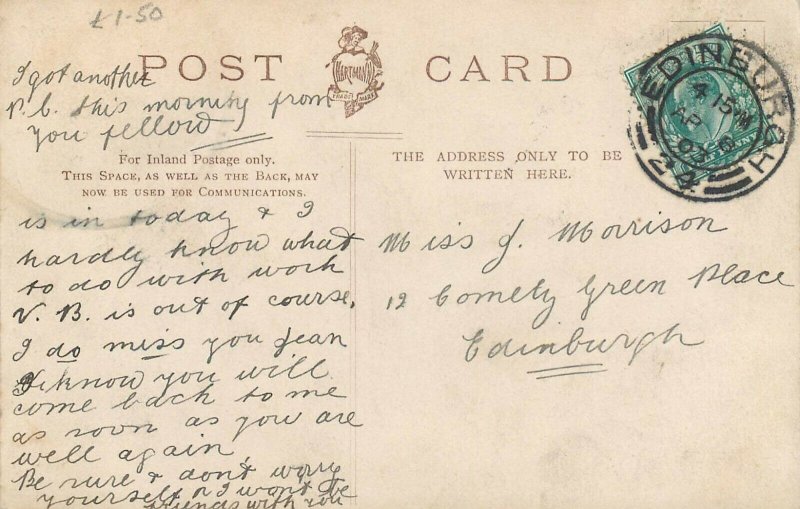 £1-50
POST CARD
HARTMANN
TRADE MARK
I got another
P.C. this morning from
you fellow
For Inland Postage only.
THIS SPACE, AS WELL AS THE BACK, MAY
NOW BE USED FOR COMMUNICATIONS.
is in today & I
hardly know what
to do with work
V. B. is out of course.
I do miss you Jean
I know you will
come back to me
as soon as you are
well again
Be sure & don't worry
yourself or I won't be
friends with you
THE ADDRESS ONLY TO BE
WRITTEN HERE.
Miss J. Morrison
12 Comely Green Place
Edinburgh
EDINBURGH
4 15 M
AP 6